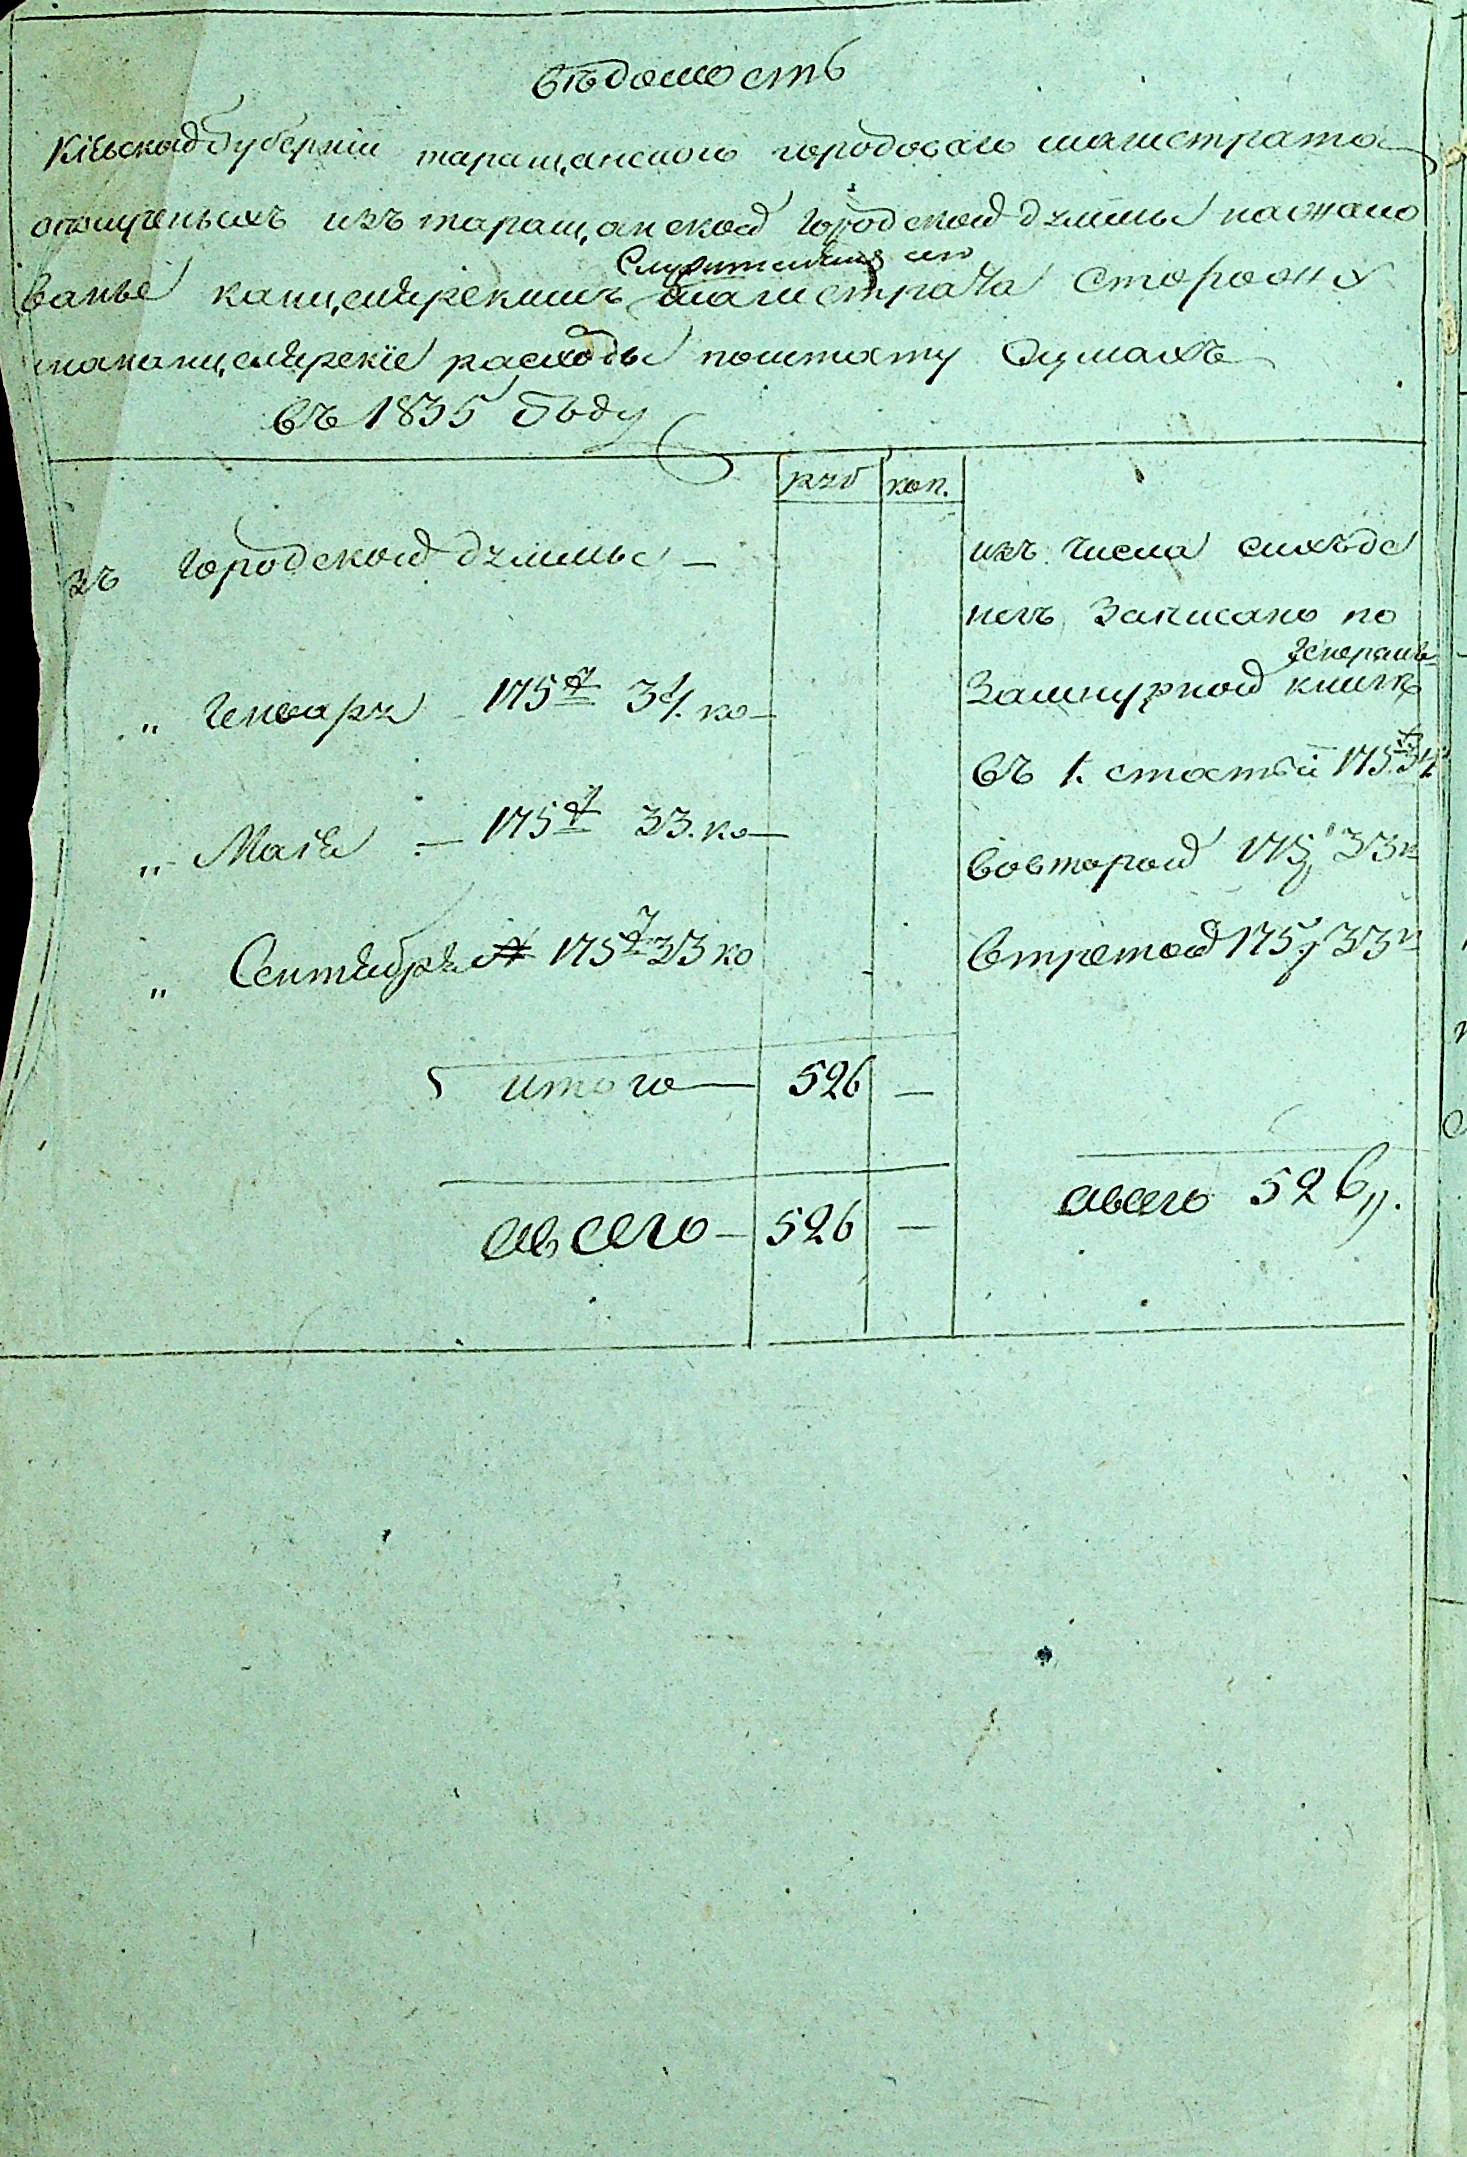 вѣдомость
Кіевской Губерніи таращанского городового магистрата
отпущенныхъ изъ таращанской городской думы нажало
Служителямъ его
ванье канцелярскимъ магистрата сторожу
наканцелярскіе расходы поштату Сумахъ
въ 1835 Году
руб коп.
изъ Городской думы —
изъ числа сихъ де
негъ записано по
Генераль
Зашнурной книгѣ
" Генваря — 175 34. ко —
въ 1. статьи 175 34
" Маія — 175 33. ко —
вовторой 175 33 к
" Сентября 175 33 ко
втретой 175 33 к
итого — 526 —
авсего — 526 —
авсего 526 р.